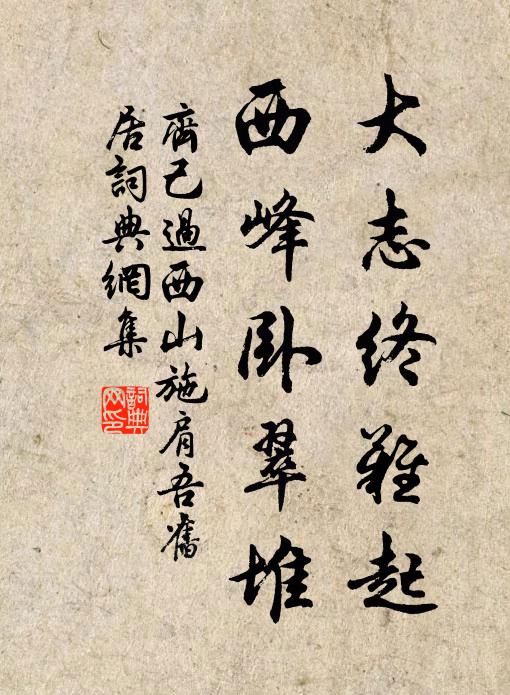 大志終難起
西峰卧翠堆
齊己過西山施肩吾舊
居詞典網集
詞典
网印